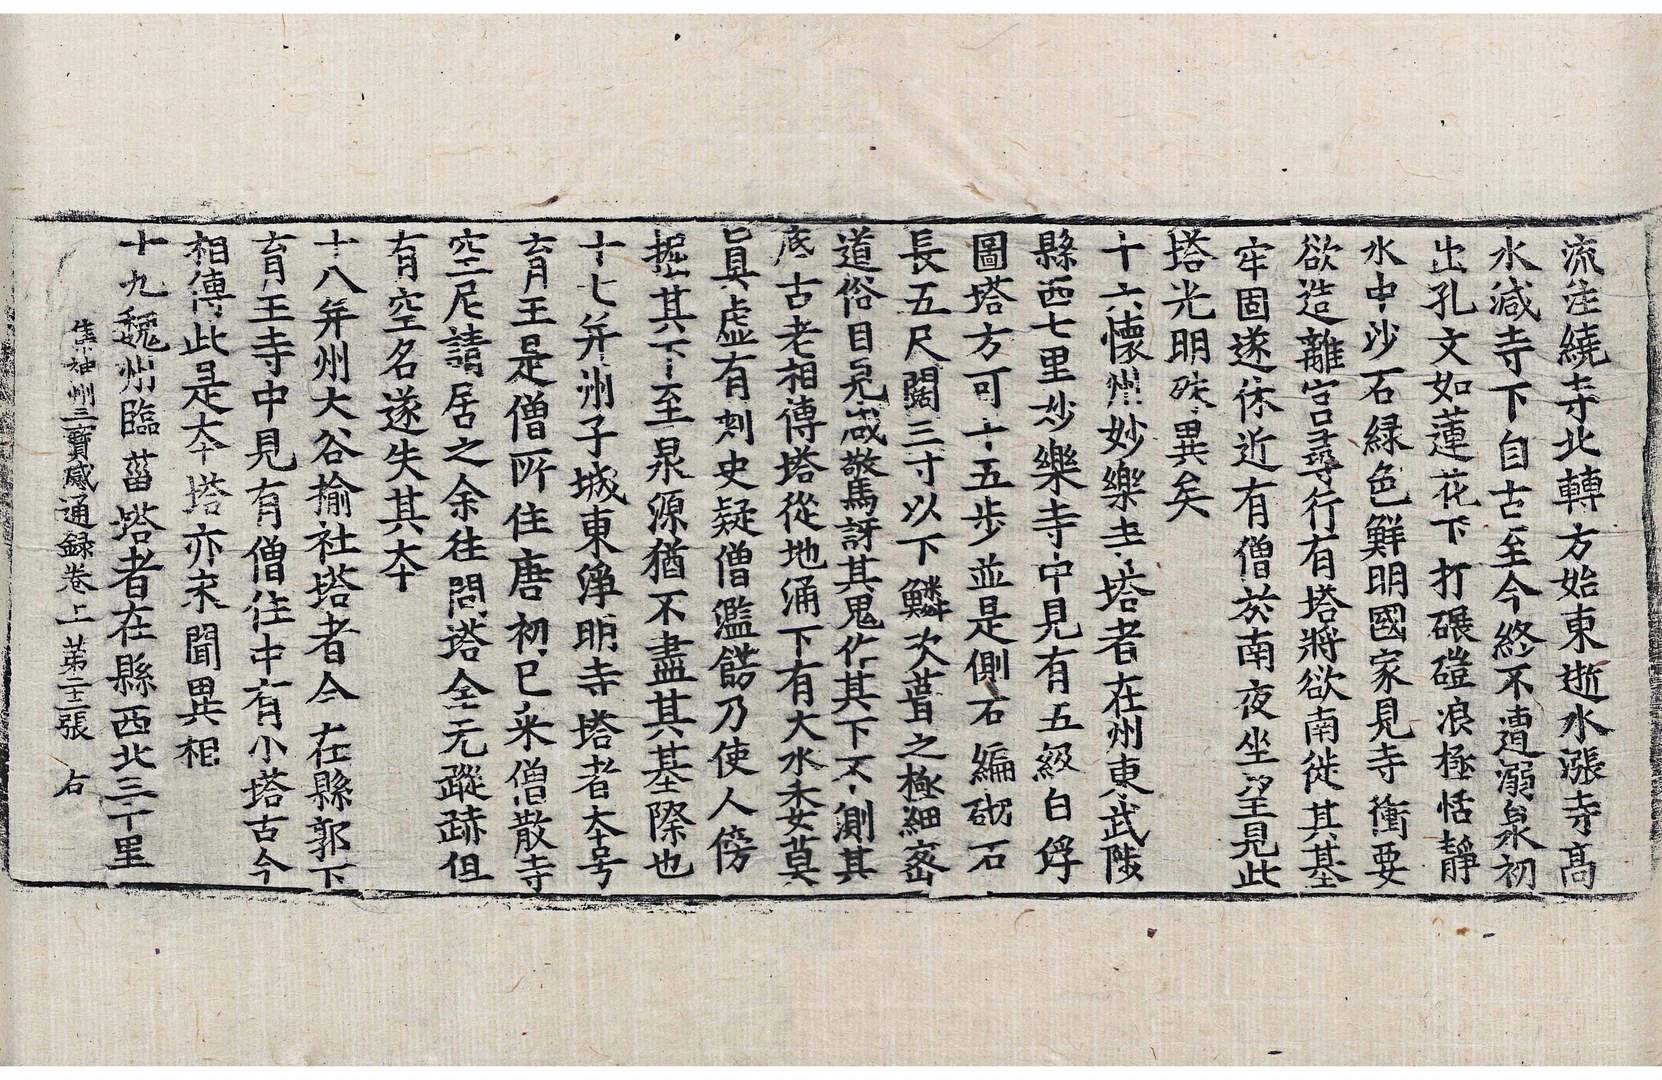 流注繞寺北轉方始東逝水漲寺高
水減寺下自古至今終不遭溺泉初
出孔文如蓮花下打碾磑浪極恬靜
水中沙石緑色鮮明國家見寺衝要
欲造離宮尋行有塔將欲南徙其基
牢固遂休近有僧於南夜坐望見此
塔光明殊異矣
十六懷州妙樂寺塔者在州東武陟
縣西七里妙樂寺中見有五級白浮
圖塔方可十五步並是側石編砌石
長五尺闊三寸以下鱗次葺之極細密
道俗目見咸敬馬訝其鬼作其下不測其
底古老相傳塔從地涌下有大水莫
眞虛有刺史疑僧濫飾乃使人傍
掘其下至泉源猶不盡其基際也
十七幷州子城東淨明寺塔者本号
育王是僧所住唐初已來僧散寺
空尼請居之余往問塔全无蹤跡但
有空名遂失其本
十八幷州大谷揄社塔者今在縣郭下
育王寺中見有僧住中有小塔古今
相傳此是本塔亦未聞異相
十九魏州臨葘塔者在縣西北三十里
集神州三寶感通録卷上 第二十二張 右